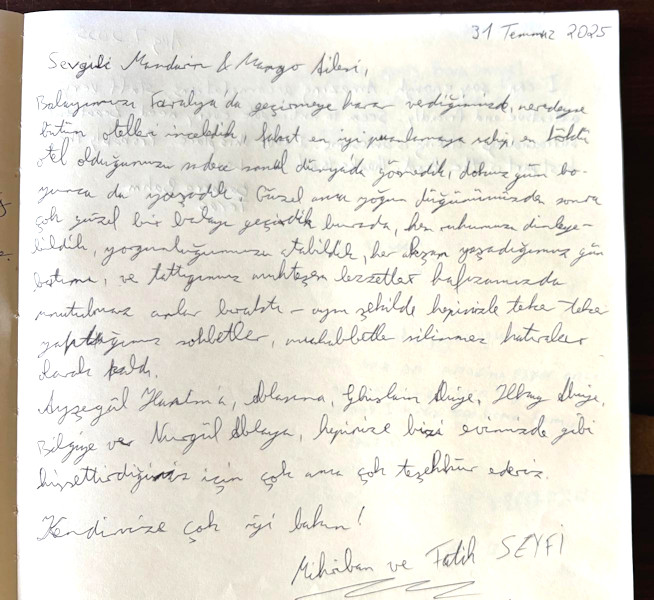 31 Temmuz 2025
Sevgili Mandarin & Mango Ailesi,
Balayımızı Faralya'da geçirmeye karar verdiğimizde, neredeyse
bütün otelleri inceledik, fakat en iyi puanlamaya sahip, en köklü
otel olduğunuzu sadece sanal dünyada görmedik, dokuz gün bo-
yunca da yaşadık. Güzel ama yoğun düğünümüzden sonra
çok güzel bir balayı geçirdik burada, hem ruhumuzu dinleye-
bildik, yorgunluğumuzu atabildik, her akşam yaşadığımız gün
batımı, ve tattığımız muhteşem lezzetler hafızamızda
unutulmaz anlar bıraktı – aynı şekilde hepinizle teker teker
yaptığımız sohbetler, muhabbetler silinmez hatıralar
olarak kaldı.
Ayşegül Hanım'a, Ablasına, Ghislain Abiye, İlkay Abiye,
Bilgiye ve Nurgül Ablaya, hepinize bizi evimizde gibi
hissettirdiğiniz için çok ama çok teşekkür ederiz.
Kendinize çok iyi bakın!
Mihriban ve Fatih SEYFİ